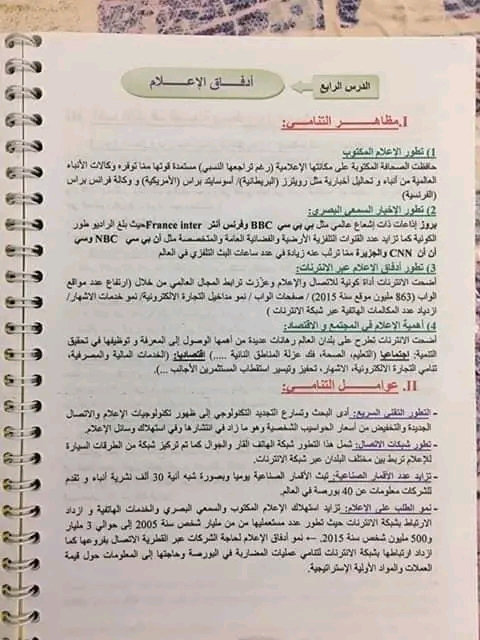 الدرس الرابع
أدفـاق الإعـــلام
I. مظاهـــر التنامـي:
1) تطور الإعلام المكتوب
حافظت الصحافة المكتوبة على مكانتها الإعلامية (رغم تراجعها النسبي) مستمدة قوتها مما توفره وكالات الأنباء
العالمية من أنباء و تحاليل أخبارية مثل رويترز (البريطانية)/ أسوسايتد براس (الأمريكية) و وكالة فرانس براس
(الفرنسية)
2) تطور الإخبار السمعي البصري:
بروز إذاعات ذات إشعاع عالمي مثل بي بي سي BBC وفرنس أنتر France inter حيث بلغ الراديو طور
الكونية كما تزايد عدد القنوات التلفزية الأرضية والفضائية العامة والمتخصصة مثل أن بي سي NBC وسي
أن أن CNN والجزيرة مما ترتب عنه زيادة في عدد ساعات البث التلفزي في العالم
3) تطور أدفاق الإعلام عبر الانترنات:
أضحت الانترنات أداة كونية للاتصال والإعلام وعززت ترابط المجال العالمي من خلال (ارتفاع عدد مواقع
الواب (863 مليون موقع سنة 2015) / صفحات الواب / نمو مداخيل التجارة الالكترونية/ نمو خدمات الاشهار/
ازدياد عدد المكالمات الهاتفية عبر شبكة الانترنات )
4) أهمية الإعلام في المجتمع و الاقتصاد:
أضحت الانترنات تطرح على بلدان عالم رهانات عديدة من أهمها الوصول إلى المعرفة و توظيفها في تحقيق
التنمية: إجتماعيا (التعليم، الصحة، فك عزلة المناطق النائية .....) إقتصاديا: (الخدمات المالية والمصرفية،
تنامي التجارة الالكترونية، الاشهار، تحفيز وتيسير استقطاب المستثمرين الأجانب ...).
II. عوامـــل التنامـي:
- التطور التقني السريع: أدى البحث وتسارع التجديد التكنولوجي إلى ظهور تكنولوجيات الإعلام والاتصال
الجديدة والتخفيض من أسعار الحواسيب الشخصية وهو ما زاد في انتشارها وفي استهلاك وسائل الإعلام.
- تطور شبكات الاتصال: شمل هذا التطور شبكة الهاتف القار والجوال كما تم تركيز شبكة من الطرقات السيارة
للإعلام تربط بين مختلف البلدان عبر شبكة الانترنات.
- تزايد عدد الأقمار الصناعية: تبث الأقمار الصناعية يوميا وبصورة شبه آنية 30 ألف نشرية أنباء و تقدم
للشركات معلومات عن 40 بورصة في العالم.
- نمو الطلب على الإعلام: تزايد استهلاك الإعلام المكتوب والسمعي البصري والخدمات الهاتفية و ازداد
الارتباط بشبكة الانترنات حيث تطور عدد مستعمليها من من مليار شخص سنة 2005 إلى حوالي 3 مليار
و500 مليون شخص سنة 2015. ← نمو أدفاق الإعلام لحاجة الشركات عبر القطرية الاتصال بفروعها كما
ازداد ارتباطها بشبكة الانترنات لتنامي عمليات المضاربة في البورصة وحاجتها إلى المعلومات حول قيمة
العملات والمواد الأولية الإستراتيجية.